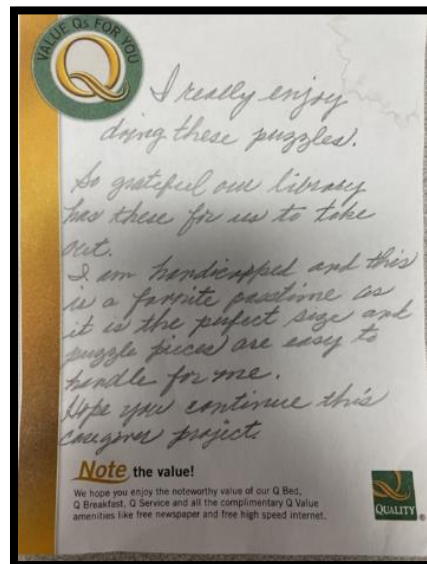 VALUE Qs FOR YOU
Q
I really enjoy
doing these puzzles.
So grateful our library
has these for us to take
out.
I am handicapped and this
is a favorite passtime as
it is the perfect size and
puzzle pieces are easy to
handle for me.
Hope you continue this
caregiver project.
Note the value!
We hope you enjoy the noteworthy value of our Q Bed,
Q Breakfast, Q Service and all the complimentary Q Value
amenities like free newspaper and free high speed internet.
QUALITY
®